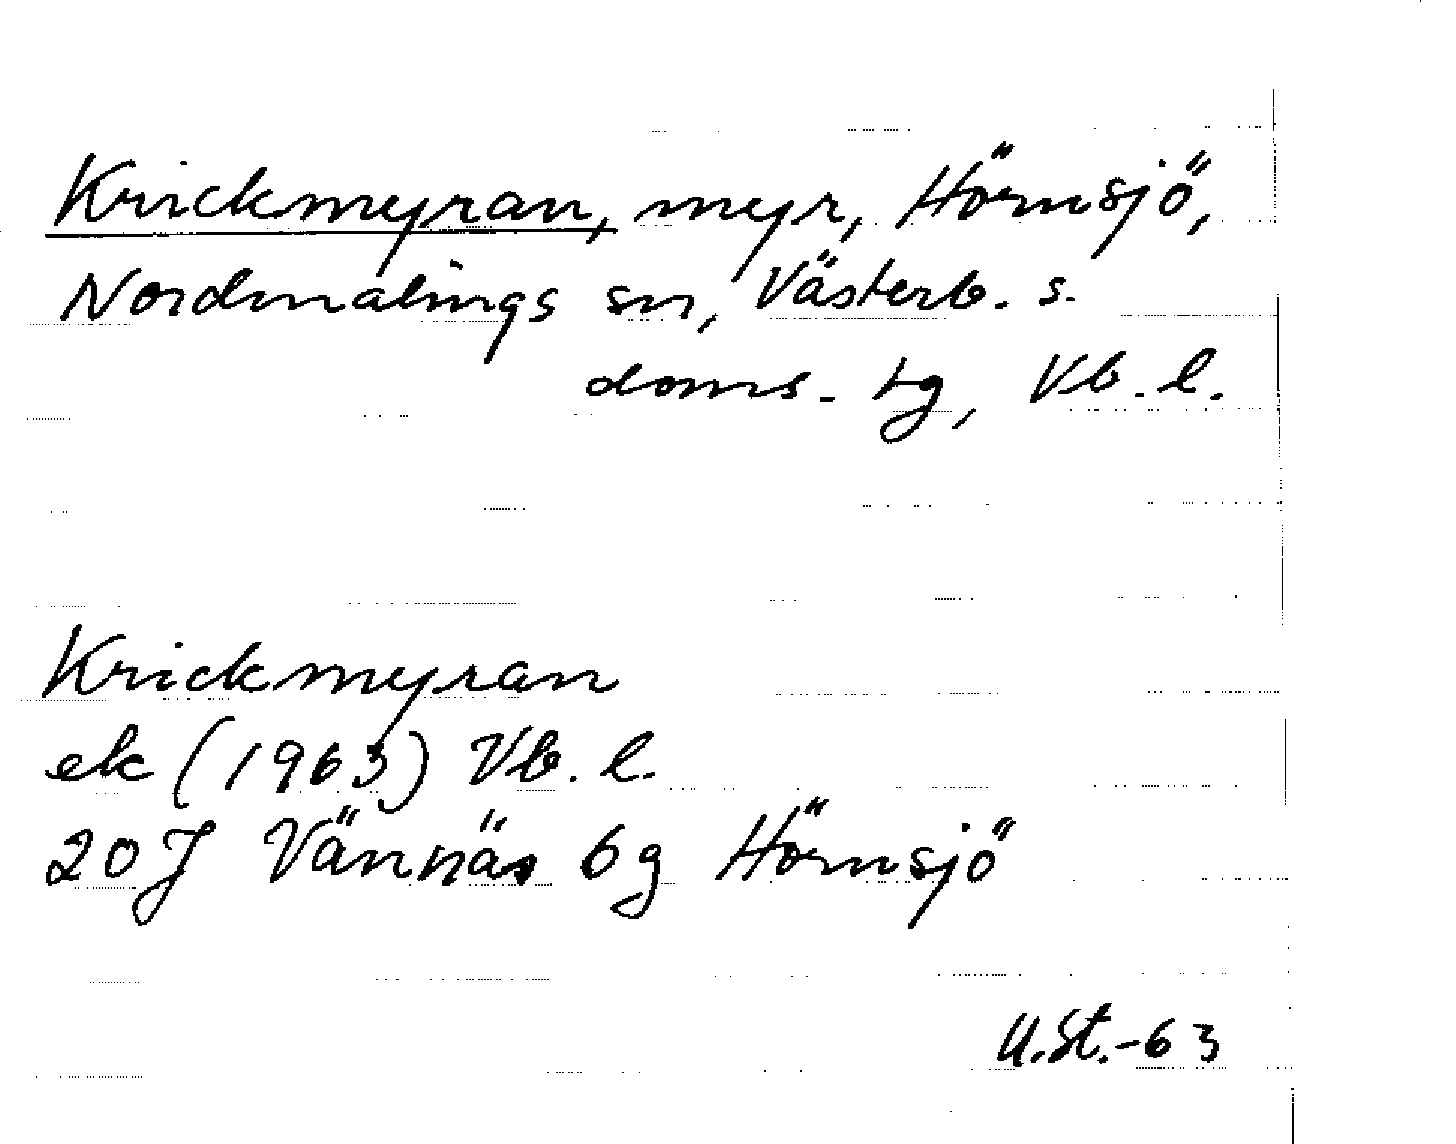 Krickmyran, myr, Hörnsjö,
Nordmalings sn, Västerb. s.
doms. tg, Vb. l.
Krickmyran
ek (1963) Vb. l.
20J Vännäs 6g Hörnsjö
U.St.-63